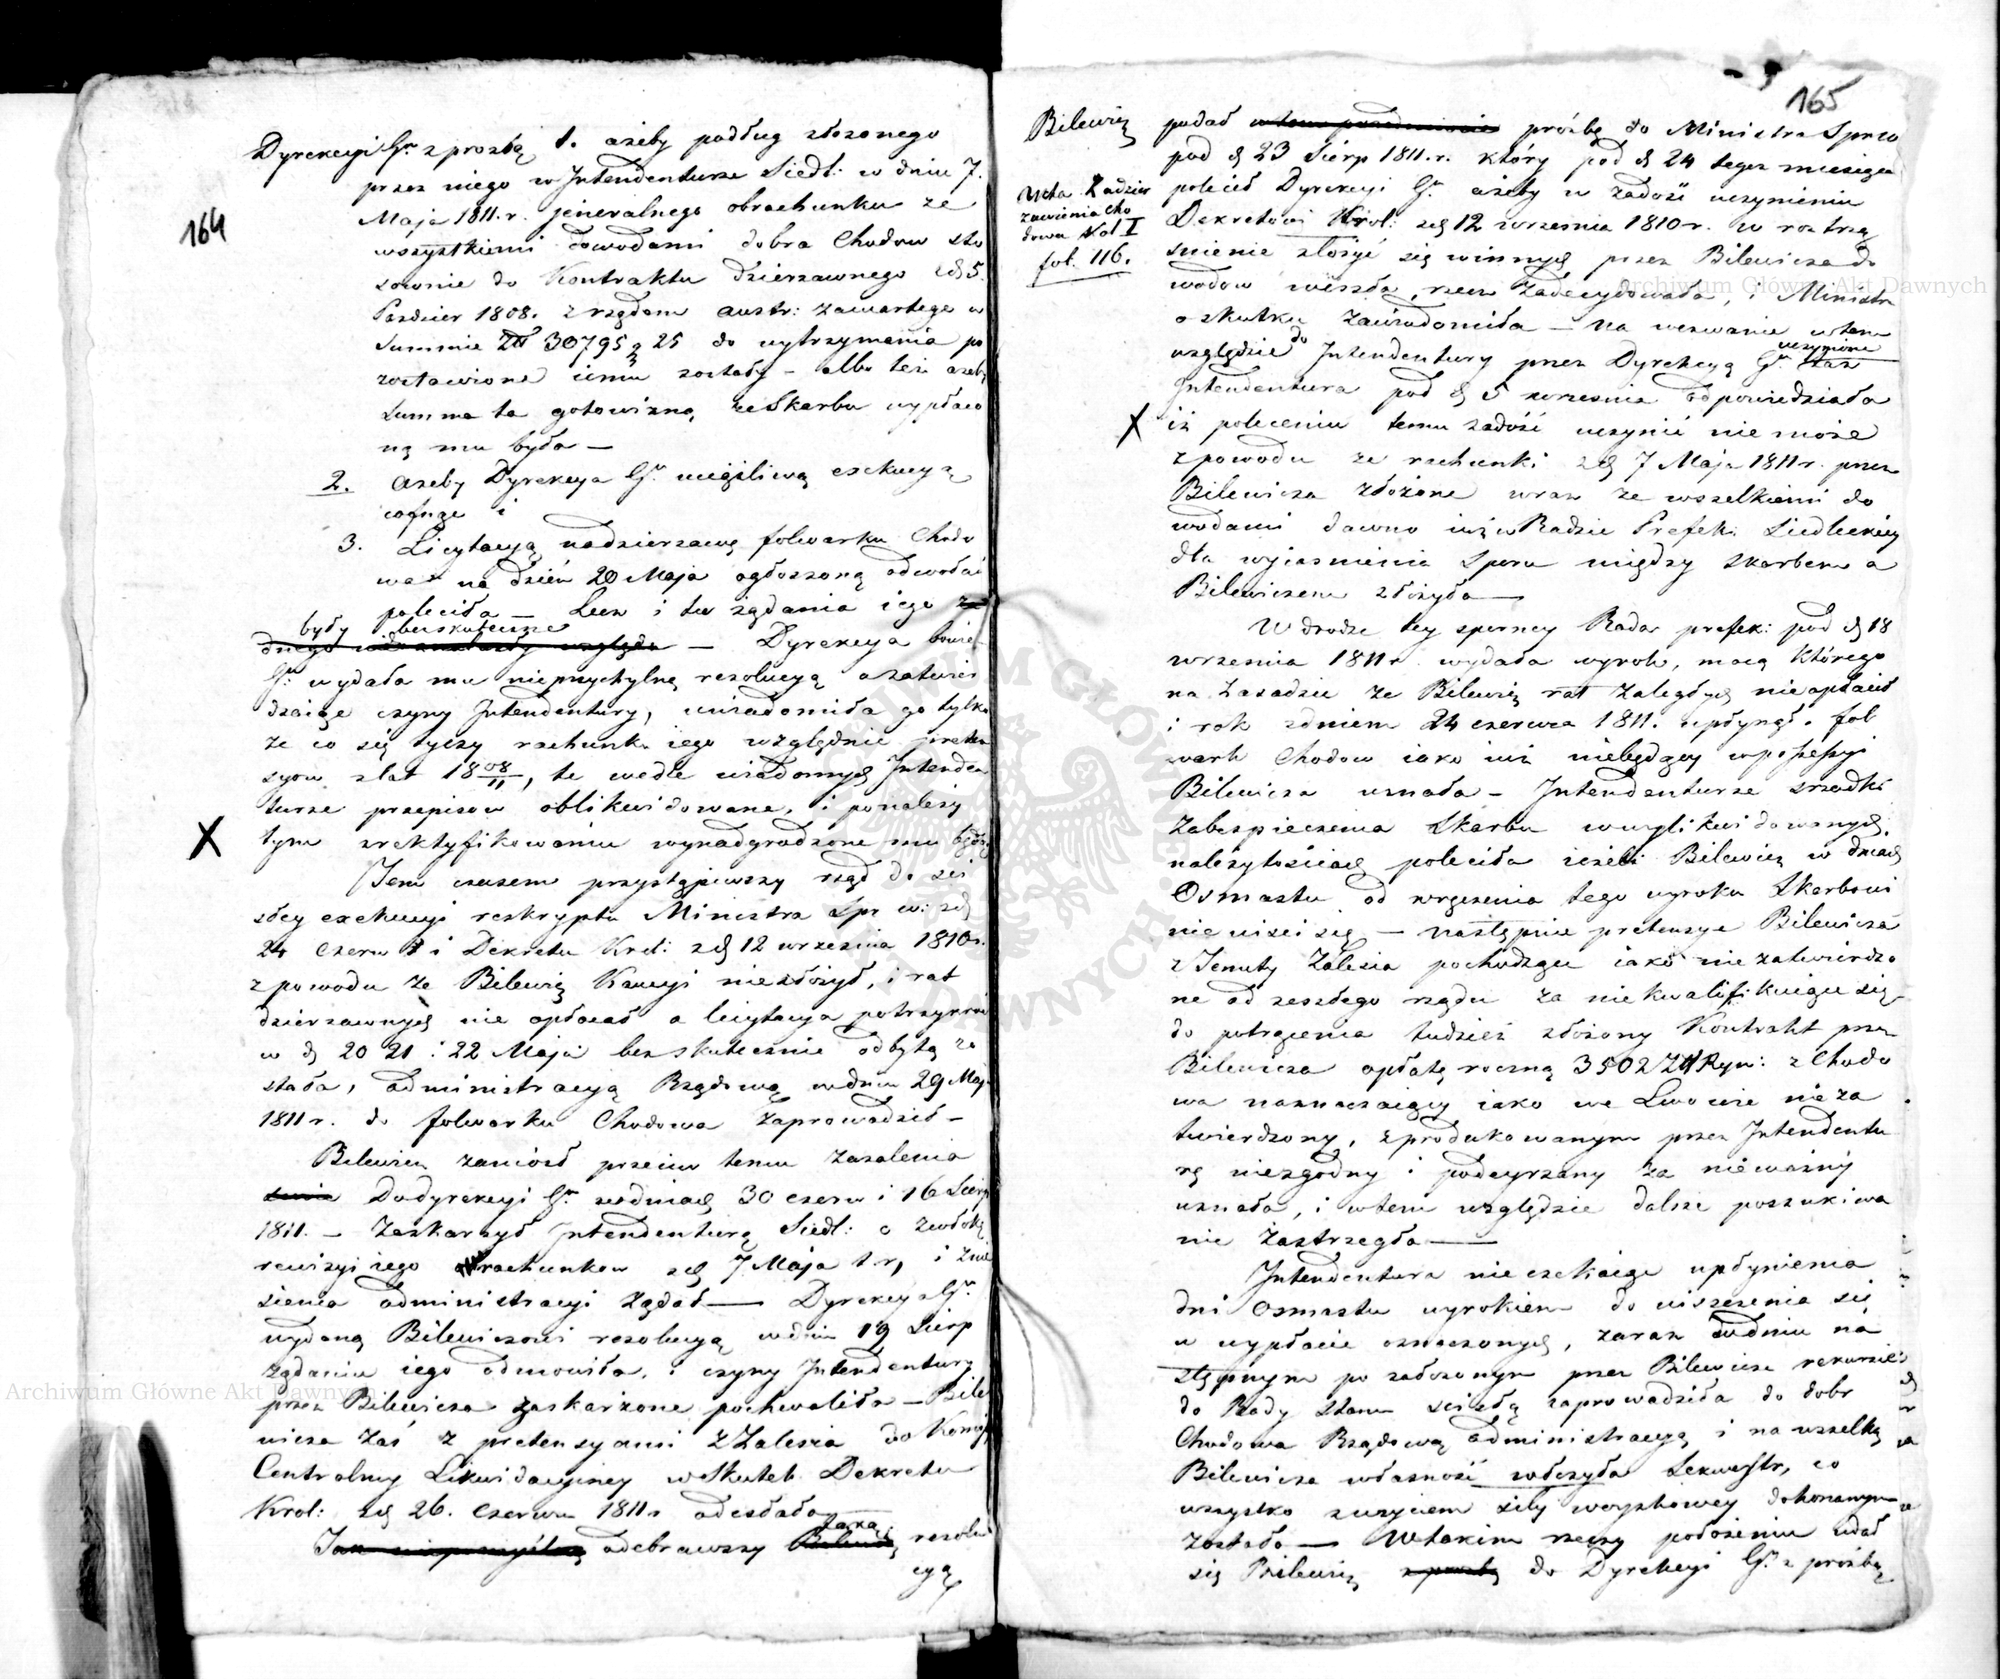 164
Dyrekcyi Gł. z prozbą 1. ażeby podług złożonego
przez niego w Intendenturze Siedl: w dniu 7.
Maja 1811. r. jeneralnego obrachunku ze
wszystkiemi dowodami dobra Chodow sto
sownie do Kontraktu dzierzawnego 5.
Pazdzier 1808. z rządem austr: zawartego w
Summie Zł 30795 25 do wytrzymania po
zostawione iemu zostały – albo też ażeby
Summa ta gotowizną ze Skarbu wypłaco
ną mu była —
2. ażeby Dyrekcya Gł. uciążliwą exekucyą
cofnąć i
3. Licytacyą na dzierzawę folwarku Chodo
wa na dzień 20 Maja ogłoszoną odwołać
poleciła — Lecz i te żądania iego
były bezskuteczne
— Dyrekcya bowie
Gł. wydała mu nieprzychylną rezolucyą a zatwier
dzaiąc czyny Intendentury, uwiadomiła go tylko
że co się tyczy rachunku iego względnie preten
syow z lat 1808/11, te wedle wiadomych Intenden
turze przepisow oblikwidowane, i po należy
X
tym zrektyfikowaniu wynadgrodzone mu będą
Tem czasem przystąpiwszy rząd do ści
słey exekucyi reskryptu Ministra Spr w: z d
24 Czerw i Dekretu Krol: z d 12 września 1810 r.
z powodu że Bilewicz Kaucyi nie złożył, i rat
dzierzawnych nie opłacał a licytacya potrzykroć
w d 20 21 i 22 Maja bezskutecznie odbytą zo
stała, administracyą Rządową w dniu 29 Maja
1811 r. do folwarku Chodowa zaprowadził –
Bilewicz zaniosł przeciw temu zażalenia
Do dyrekcyi Gł w dniach 30 czerw i 16 Sierp
1811. – Zaskarżył Intendenturę Siedl: o zwłokę
rewizyi iego rachunkow z d 7 Maja t r, i znie
sienia administracyi żądał — Dyrekcya Gł.
wydaną Bilewiczowi rezolucyą w dniu 19 Sierp
żądaniu iego odmowiła, i czyny Intendentury
przez Bilewicza zaskarżone pochwaliła – Bile
wicza zaś z pretensyami z Zalesia do Komiss
Centralney Likwidacyiney w Skutek Dekretu
Krol: z d 26. Czerwca 1811 r odesłała
taką
odebrawszy rezolu
cyą
165
Bilewicz
podał prózbę do Ministra Spraw
pod d 23 Sierp 1811. r. który pod d 24 tegoż miesiąca
polecił Dyrekcyi Gł. ażeby w zadość uczynieniu
Dekretowi Krol: z d 12 września 1810 r. w roztrzą
śnienie złożyć się winnych przez Bilewicza do
wodow weszła, rzecz zadecydowała, i Ministra
o skutku zawiadomiła — Na wezwanie w tem
względzie do Intendentury przez Dyrekcyą Gł. uczynione
Intendentura pod d 5 września odpowiedziała
X
iż poleceniu temu zadość uczynić nie może
z powodu że rachunki z d 7 Maja 1811 r. przez
Bilewicza złożone wraz ze wszelkiemi do
wodami dawno iuż w Radzie Prefek: Siedleckiey
dla wyiaśnienia Sporu między Skarbem a
Bilewiczem złożyła —
W drodze tey sporney Rada prefek: pod d 18
września 1811 r. wydała wyrok, mocą którego
na Zasadzie że Bilewicz rat zaległych nie opłacił
i rok z dniem 24 czerwca 1811. upłynął. fol
wark Chodow iako iuż niebędący w possessyi
Bilewicza uznała – Intendenturze srzodki
Zabezpieczenia Skarbu w wylikwidowanych
należytościach poleciła ieżeli Bilewicz w dniach
Osmastu od wręczenia tego wyroku Skarbowi
nie uiści się — następnie pretensye Bilewicza
z Tenuty Zalesia pochodzące iako nie zatwierdzo
ne od zeszłego rządu za nie kwalifikuiące się
do potrącenia tudzież złożony Kontrakt przez
Bilewicza opłatę roczną 3502 Zł Ryn: z Chodo
wa naznaczaiący iako we Lwowie nie za
twierdzony, z produkowanym przez Intendentu
rę niezgodny i podeyrzany za nieważny
uznała, i w tem względzie dalsze poszukiwa
nie Zastrzegła —
Intendentura nie czekaiąc upłynienia
dni Osmastu wyrokiem do uiszczenia się
w wypłacie oznaczonych, zaraz w dniu na
stępnym po założonym przez Bilewicza rekursie
do Rady Stanu ścisłą zaprowadziła do dobr
Chodowa Rządową administracyą i na wszelką
Bilewicza własność włożyła Sekwestr, co
wszystko z użyciem siły woyskowey dokonanym
zostało — W takim rzeczy położeniu udał
się Bilewicz do Dyrekcyi Gł. z prózbą
fol. 116.
Archiwum Główne Akt Dawnych
Archiwum Główne Akt Dawnych
ARCHIWUM GŁÓWNE AKT DAWNYCH